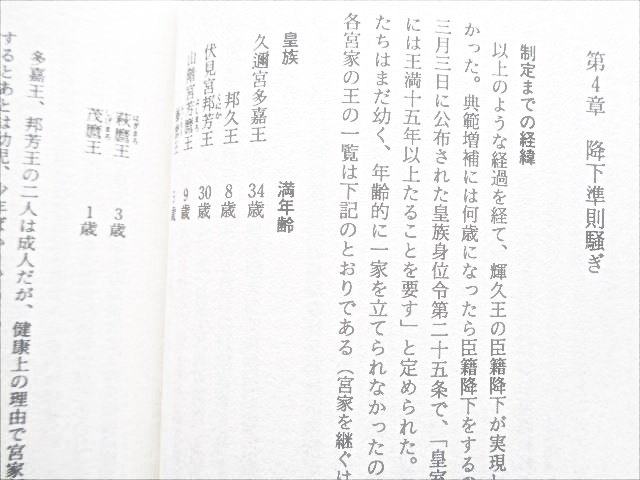 第4章 降下準則騒ぎ
制定までの経緯
以上のような経過を経て、輝久王の臣籍降下が実現し
かった。典範増補には何歳になったら臣籍降下をするの
三月三日に公布された皇族身位令第二十五条で、「皇室
には王満十五年以上たることを要す」と定められた。
たちはまだ幼く、年齢的に一家を立てられなかったの
各宮家の王の一覧は下記のとおりである（宮家を継ぐは
皇族 満年齢
久邇宮多嘉王 34歳
邦久王 8歳
伏見宮邦芳王 30歳
山階宮芳麿王 9歳
萩麿王 3歳
茂麿王 1歳
多嘉王、邦芳王の二人は成人だが、健康上の理由で宮家
するとあとは幼児、少年ばか